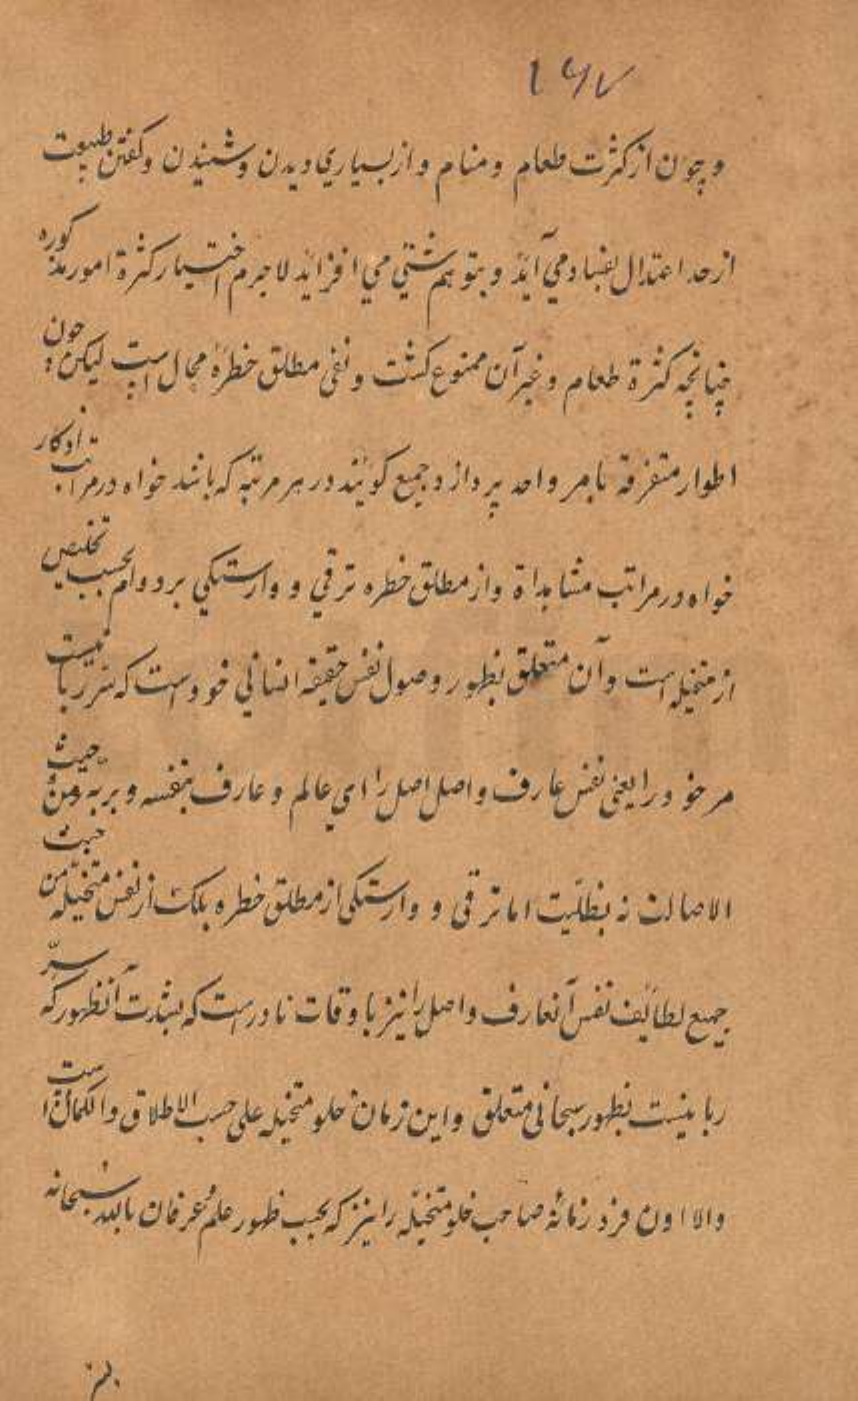 ۱۶۷
وچون از کثرت طعام ومنام واز بسیاري دیدن وشنیدن وگفتن طبیعت
از حد اعتدال بفساد مي آید وبتوهم شتي مي افزاید لاجرم اختیار کثرة امور مذکوره
چنانچه کثرة طعام وغیر آن ممنوع گشت ونفی مطلق خطرهٔ محال است لیکن چون
اطوار متفرقه بامر واحد پردازد جمع گویند در هر مرتبه که باشد خواه در مراتب اذکار
خواه در مراتب مشاهداة واز مطلق خطره ترقي و وارستگي بر دوام بحسب تخلیص
از متخیله است وآن متعلق بظهور وصول نفس حقیقه انساني خود است که سر ربانیست
مر خود را یعنی نفس عارف واصل اصل را اي عالم وعارف بنفسه وبربه من حیث
الاصالت نه بظلّیت اما ترقی و وارستگی از مطلق خطره بلکه از نفس متخیله من حیث
جمیع لطائف نفس آنعارف واصل را نیز باوقات نادر است که بشدت آنظهور که سرّ
ربانیست بظهور سبحانی متعلق واین زمان خلو متخیله علی حسب الاطلاق والکمال است
والا اون فرد زمانهٔ صاحب خلو متخیله را نیز که بحسب ظهور علم وعرفان بالله سبحانه